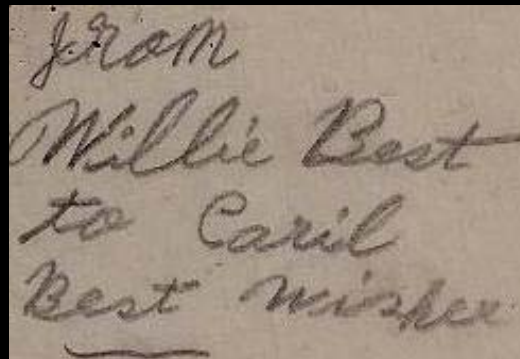 From
Willie Best
to Caril
Best wishes